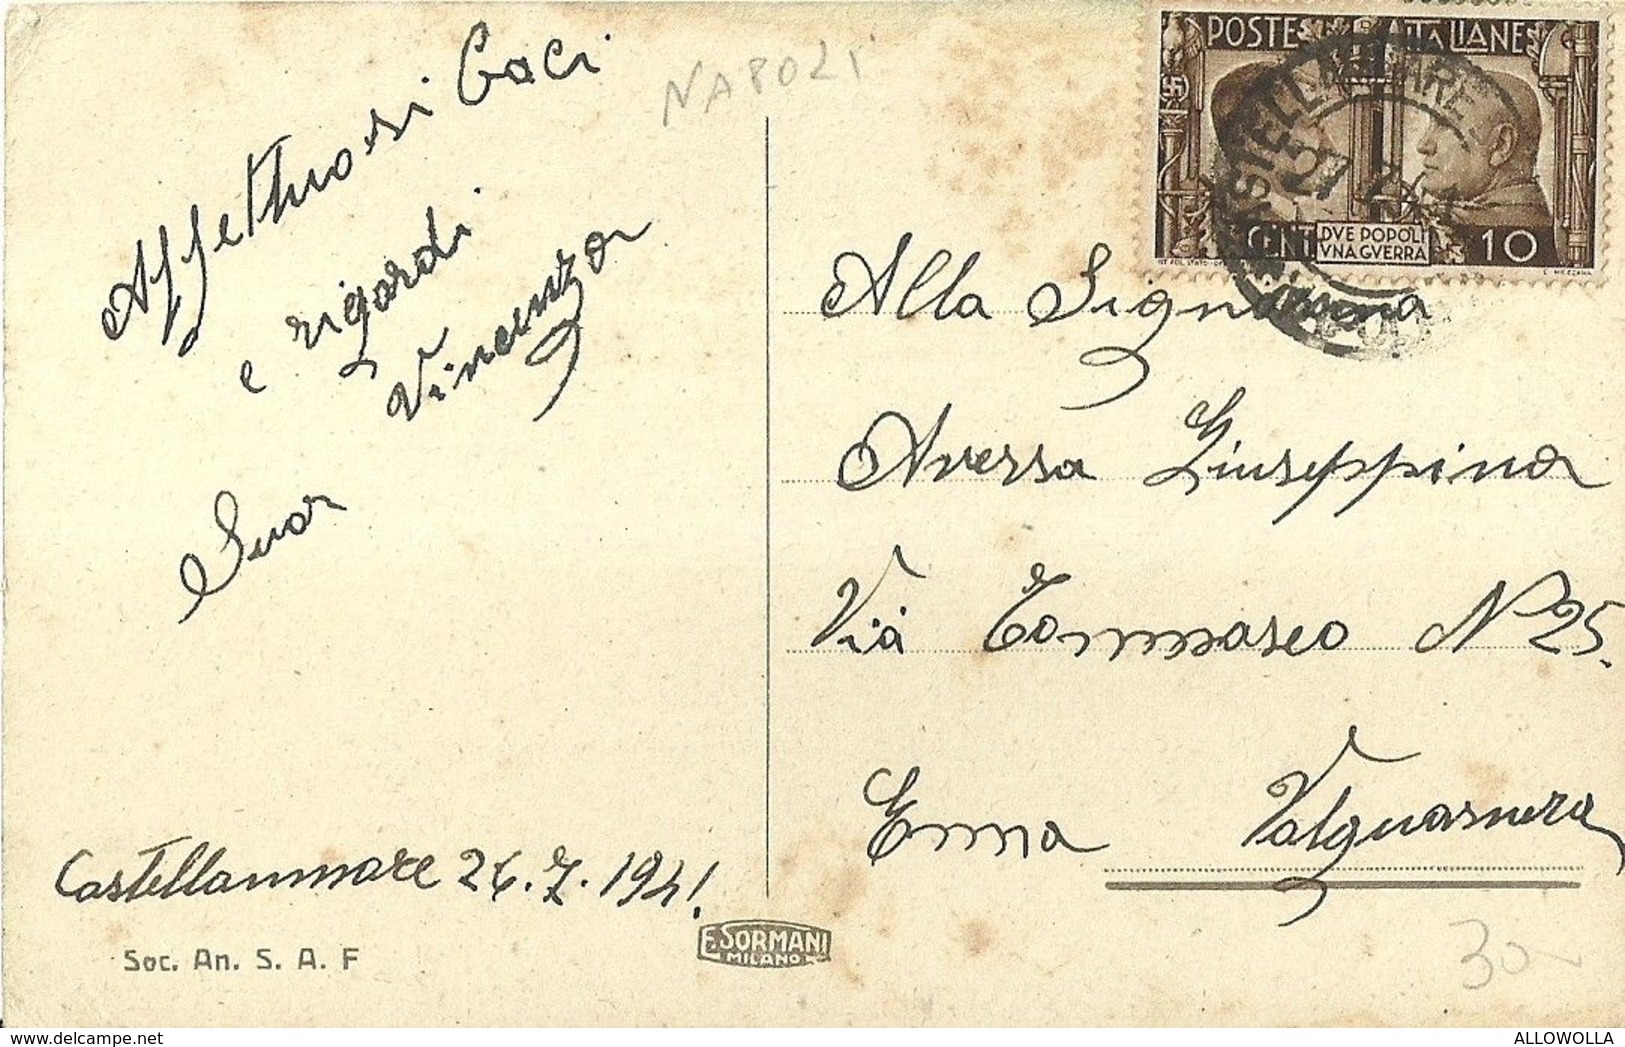 NAPOLI
Affettuosi baci
e rigardi
Vincenza
Suor
Castellammare 26.7.1941.
Soc. An. S. A. F
E. SORMANI
MILANO
POSTE ITALIANE
CENT
DVE POPOLI
VNA GVERRA
10
CASTELLAMMARE
27 7 41
Alla Signora
Aversa Giuseppina
Via Tommaseo N 25.
Enna Valguarnera
30
ALLOWOLLA